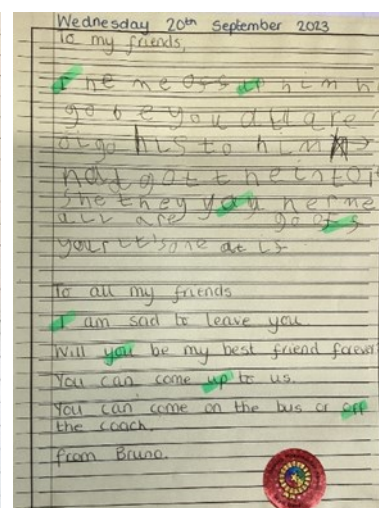 Wednesday 20th September 2023
To my friends,
I he me oss up him h
go be you all are
or go his to him
had got the into it
she they you her me
all are go of s
your it's one at is
To all my friends
I am sad to leave you.
Will you be my best friend forever
You can come up to us.
You can come on the bus or off
the coach.
from Bruno.